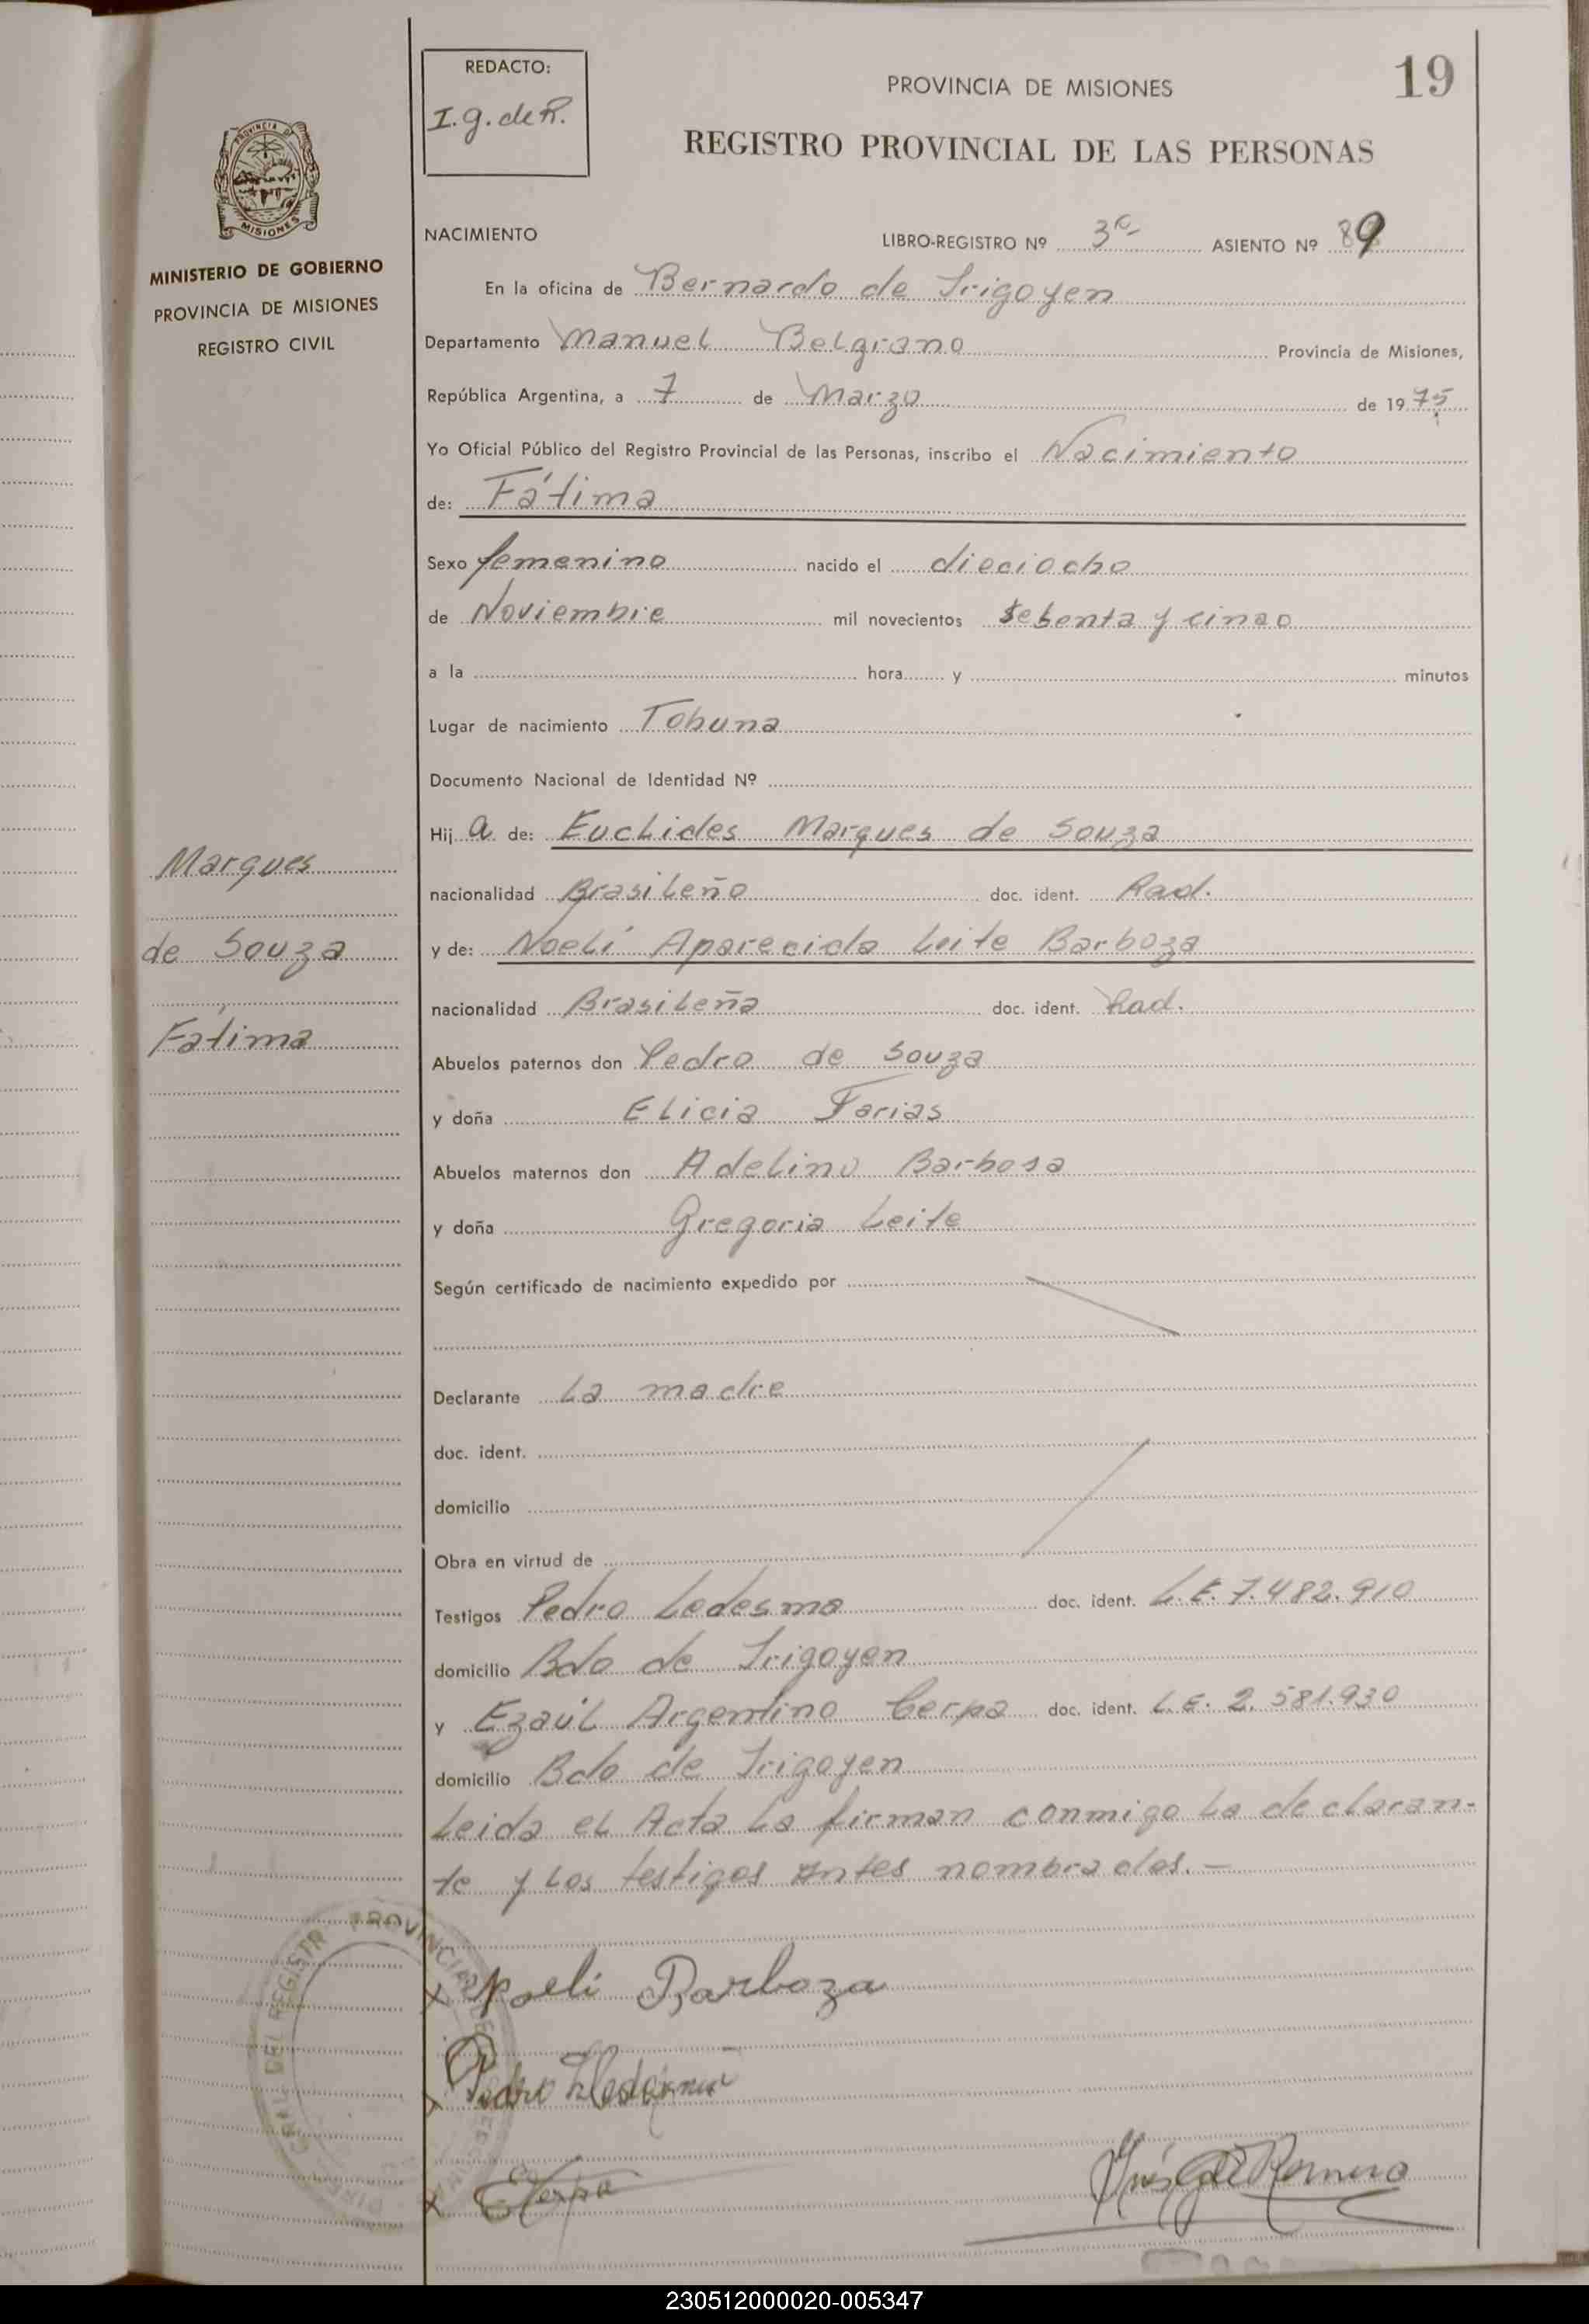 REDACTO:
I.g. de R.
PROVINCIA DE MISIONES
19
REGISTRO PROVINCIAL DE LAS PERSONAS
PROVINCIA D
MISIONES
MINISTERIO DE GOBIERNO
PROVINCIA DE MISIONES
REGISTRO CIVIL
NACIMIENTO
LIBRO-REGISTRO Nº 3º- ASIENTO Nº 89
En la oficina de Bernardo de Irigoyen
Departamento Manuel Belgrano Provincia de Misiones,
República Argentina, a 7 de Marzo de 1975
Yo Oficial Público del Registro Provincial de las Personas, inscribo el Nacimiento
de: Fátima
Sexo femenino nacido el dieciocho
de Noviembre mil novecientos setenta y cinco
a la hora y minutos
Lugar de nacimiento Tobuna
Documento Nacional de Identidad Nº
Hij a de: Euclides Marques de Souza
nacionalidad Brasileño doc. ident. Rad.
y de: Noelí Aparecida Leite Barboza
nacionalidad Brasileña doc. ident. Rad.
Abuelos paternos don Pedro de Souza
y doña Elicia Farias
Abuelos maternos don Adelino Barbosa
y doña Gregoria Leite
Según certificado de nacimiento expedido por
Declarante La madre
doc. ident.
domicilio
Obra en virtud de
Testigos Pedro Ledesma doc. ident. L.E. 7.482.910
domicilio Bdo de Irigoyen
y Ezaúl Argentino Cerpa doc. ident. L.E. 2.581.930
domicilio Bdo de Irigoyen
Leida el Acta la firman conmigo la declaran-
te y los testigos antes nombrados.-
Marques
de Souza
Fátima
x Noeli Barboza
x Pedro Ledesma
x ECerpa
Inés G de Romero
230512000020-005347